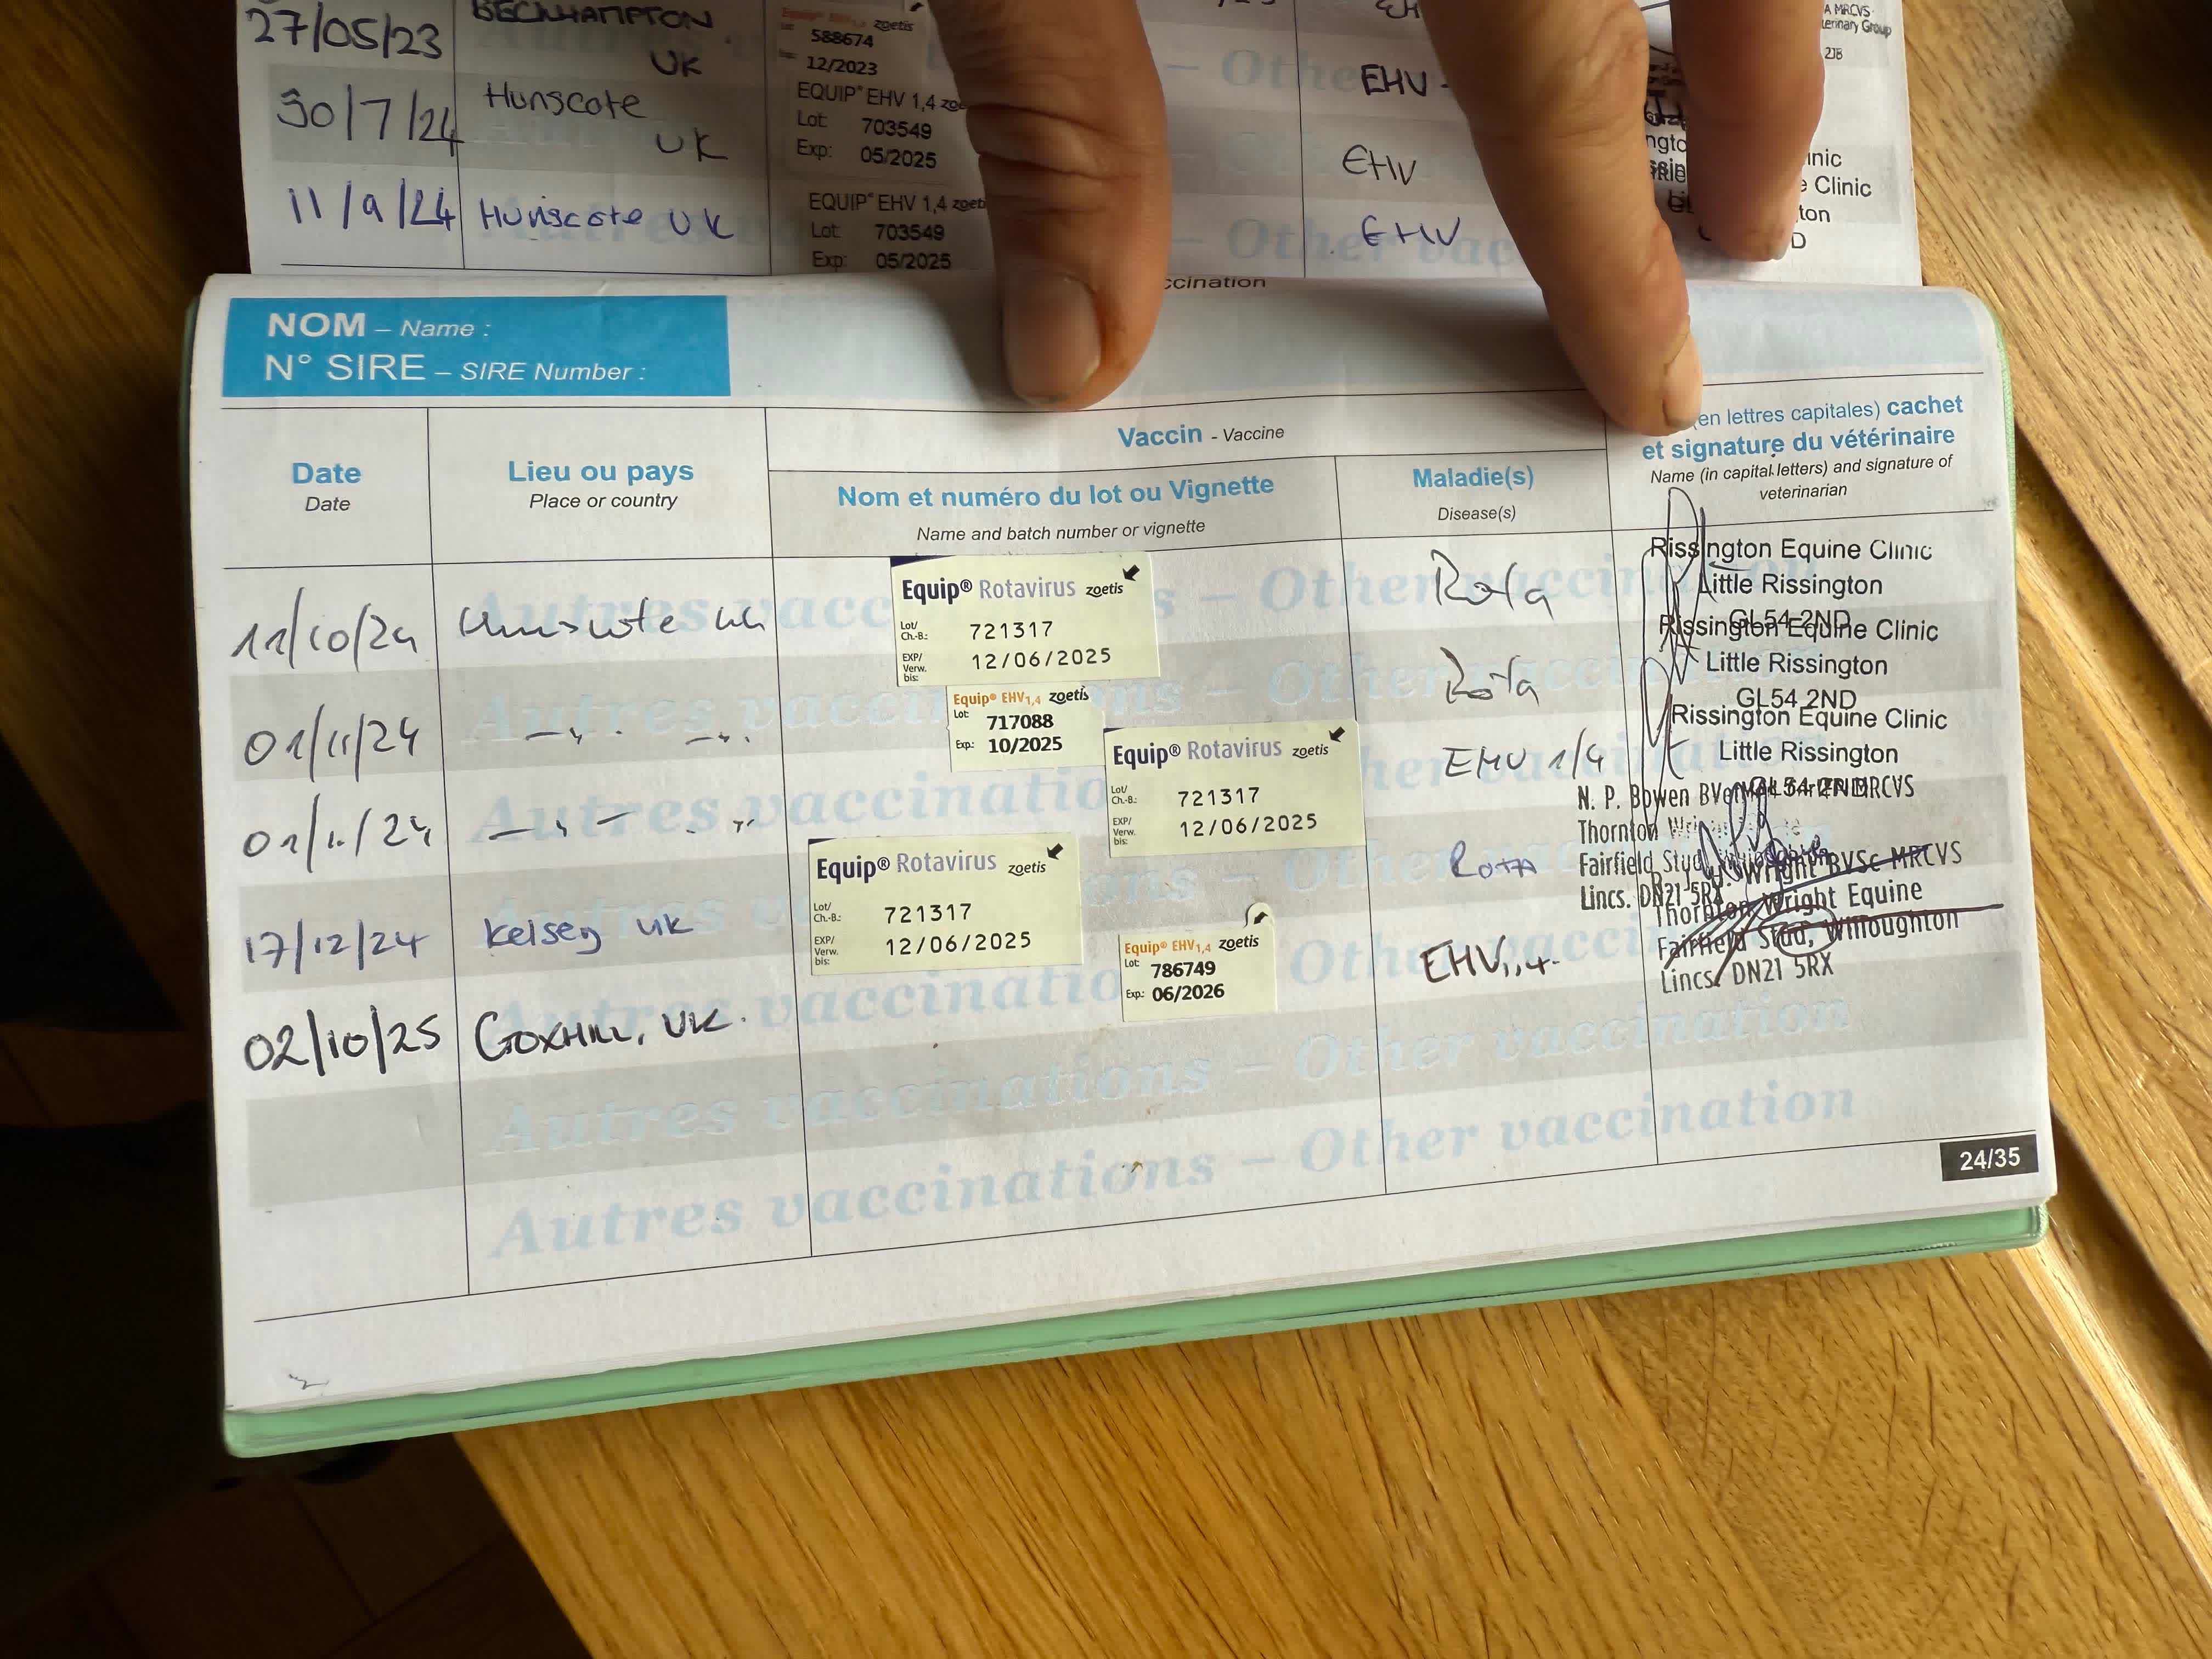 27/05/23 BECKHAMPTON UK
588674 zoetis
12/2023
30/7/24 Hunscote UK
EQUIP® EHV 1,4
Lot: 703549
Exp: 05/2025
EHV -
11/9/24 Hunscote UK
EQUIP® EHV 1,4 zoeti
Lot: 703549
Exp: 05/2025
EHV
EHV
A MRCVS
terinary Group
2JB
inic
e Clinic
ton
D
ccination
NOM – Name :
N° SIRE – SIRE Number :
Date
Date
Lieu ou pays
Place or country
Vaccin - Vaccine
Nom et numéro du lot ou Vignette
Name and batch number or vignette
Maladie(s)
Disease(s)
(en lettres capitales) cachet
et signature du vétérinaire
Name (in capital letters) and signature of
veterinarian
11/10/24 Hunscote UK
Equip® Rotavirus zoetis
Lot/
Ch.-B.: 721317
EXP/
Verw.
bis: 12/06/2025
Rota
Rissington Equine Clinic
Little Rissington
GL54 2ND
01/11/24
Equip® EHV1,4 zoetis
Lot: 717088
Exp.: 10/2025
Rota
Rissington Equine Clinic
Little Rissington
GL54 2ND
01/11/24
Equip® Rotavirus zoetis
Lot/
Ch.-B.: 721317
EXP/
Verw.
bis: 12/06/2025
EHV 1/4
Rissington Equine Clinic
Little Rissington
GL54 2ND
17/12/24 Kelsey UK
Equip® Rotavirus zoetis
Lot/
Ch.-B.: 721317
EXP/
Verw.
bis: 12/06/2025
ROTA
N. P. Bowen BVetMed MRCVS
Thornton
Fairfield Stud
Lincs. DN21 5RX
02/10/25 GOXHILL, UK.
Equip® EHV1,4 zoetis
Lot: 786749
Exp.: 06/2026
EHV1,4.
Wright BVSc MRCVS
Thornton Wright Equine
Fairfield Stud, Willoughton
Lincs. DN21 5RX
Autres vaccinations – Other vaccination
Autres vaccinations – Other vaccination
24/35